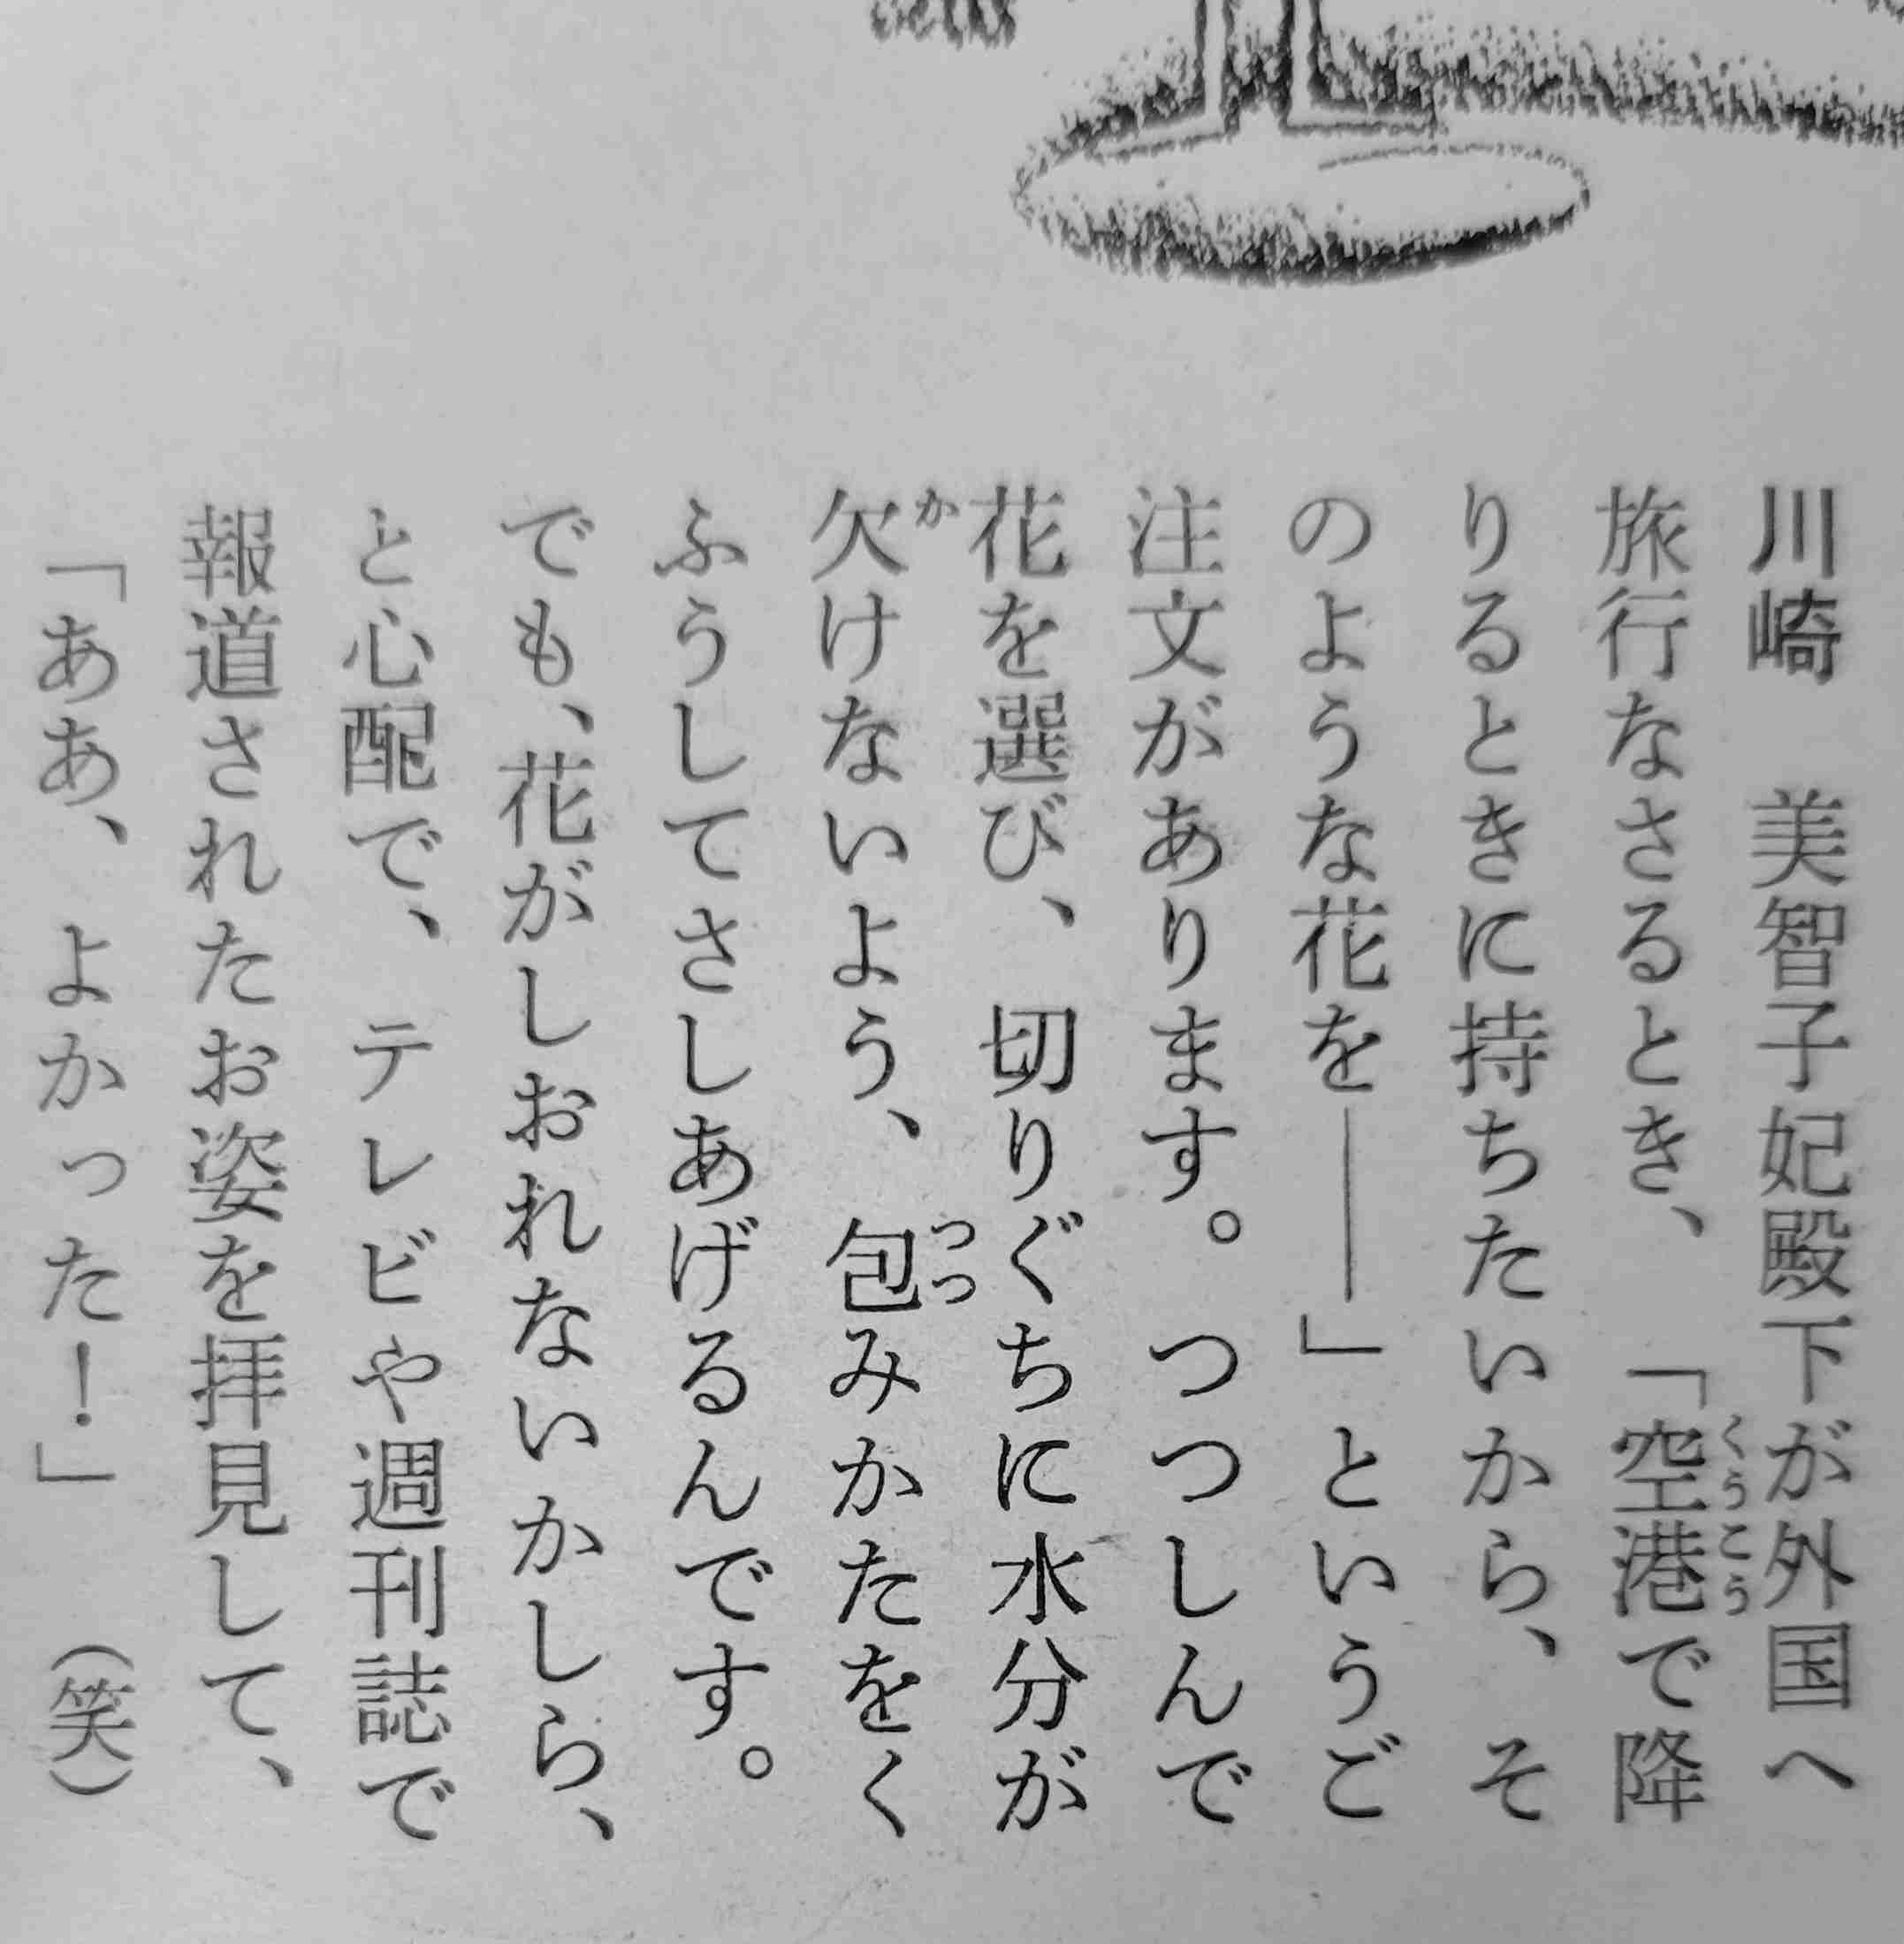 川崎　美智子妃殿下が外国へ
旅行なさるとき、「空港で降
りるときに持ちたいから、そ
のような花を――」というご
注文があります。つつしんで
花を選び、切りぐちに水分が
欠けないよう、包みかたをく
ふうしてさしあげるんです。
でも、花がしおれないかしら、
と心配で、テレビや週刊誌で
報道されたお姿を拝見して、
「ああ、よかった！」（笑）